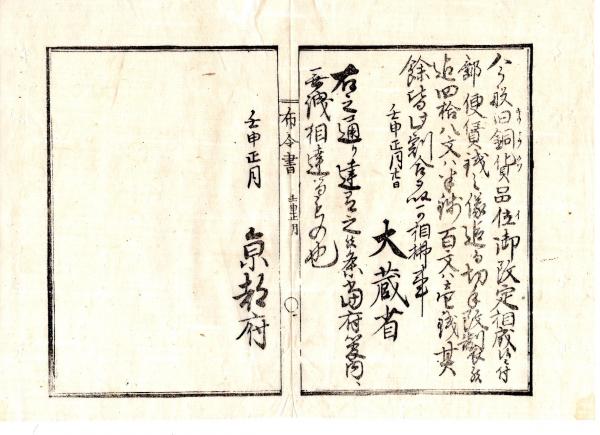 今般旧銅貨品位御改定相成候ニ付
郵便賃銭之儀追而切手改製迄
四拾八文ハ半銭百文ハ壱銭其
餘皆此割合を以可相拂事
壬申正月
大蔵省
右之通り達有之候条当府管内ニ
無洩相達するもの也
布令書
壬申正月
壬申正月
京都府